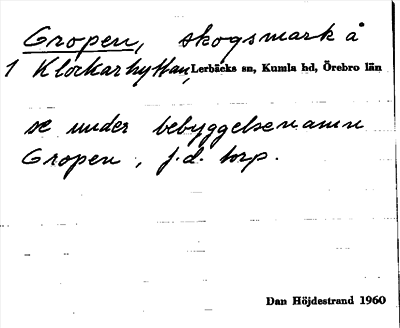 Gropen, skogsmark å
1 Klockarhyttan, Lerbäcks sn, Kumla hd, Örebro län
se under bebyggelsenamn
Gropen, f.d. torp.
Dan Höjdestrand 1960